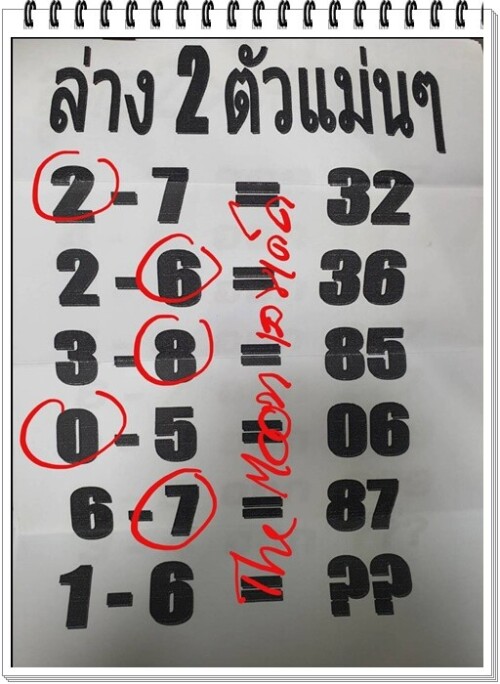 ล่าง 2 ตัวแม่นๆ
2 - 7 = 32
2 - 6 = 36
3 - 8 = 85
0 - 5 = 06
6 - 7 = 87
1 - 6 = ??
The Moon